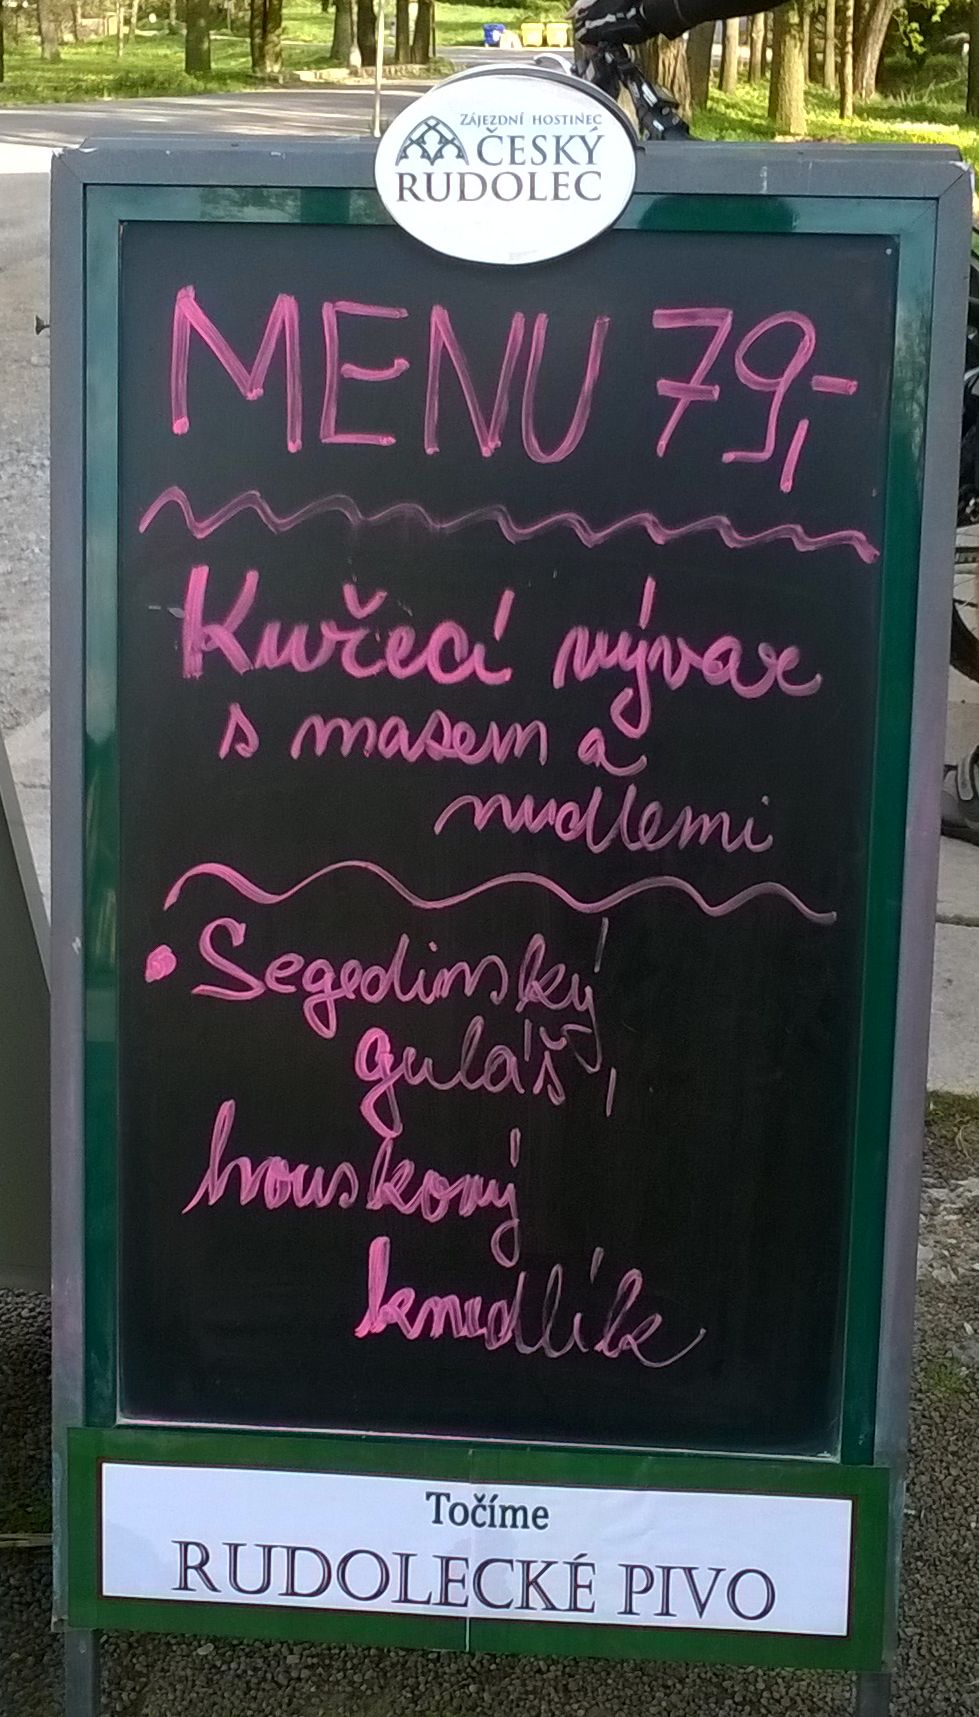 ZÁJEZDNÍ HOSTINEC
ČESKÝ
RUDOLEC
MENU 79,-
Kuřecí vývar
s masem a
nudlemi
• Segedinský
guláš,
houskový
knedlík
Točíme
RUDOLECKÉ PIVO